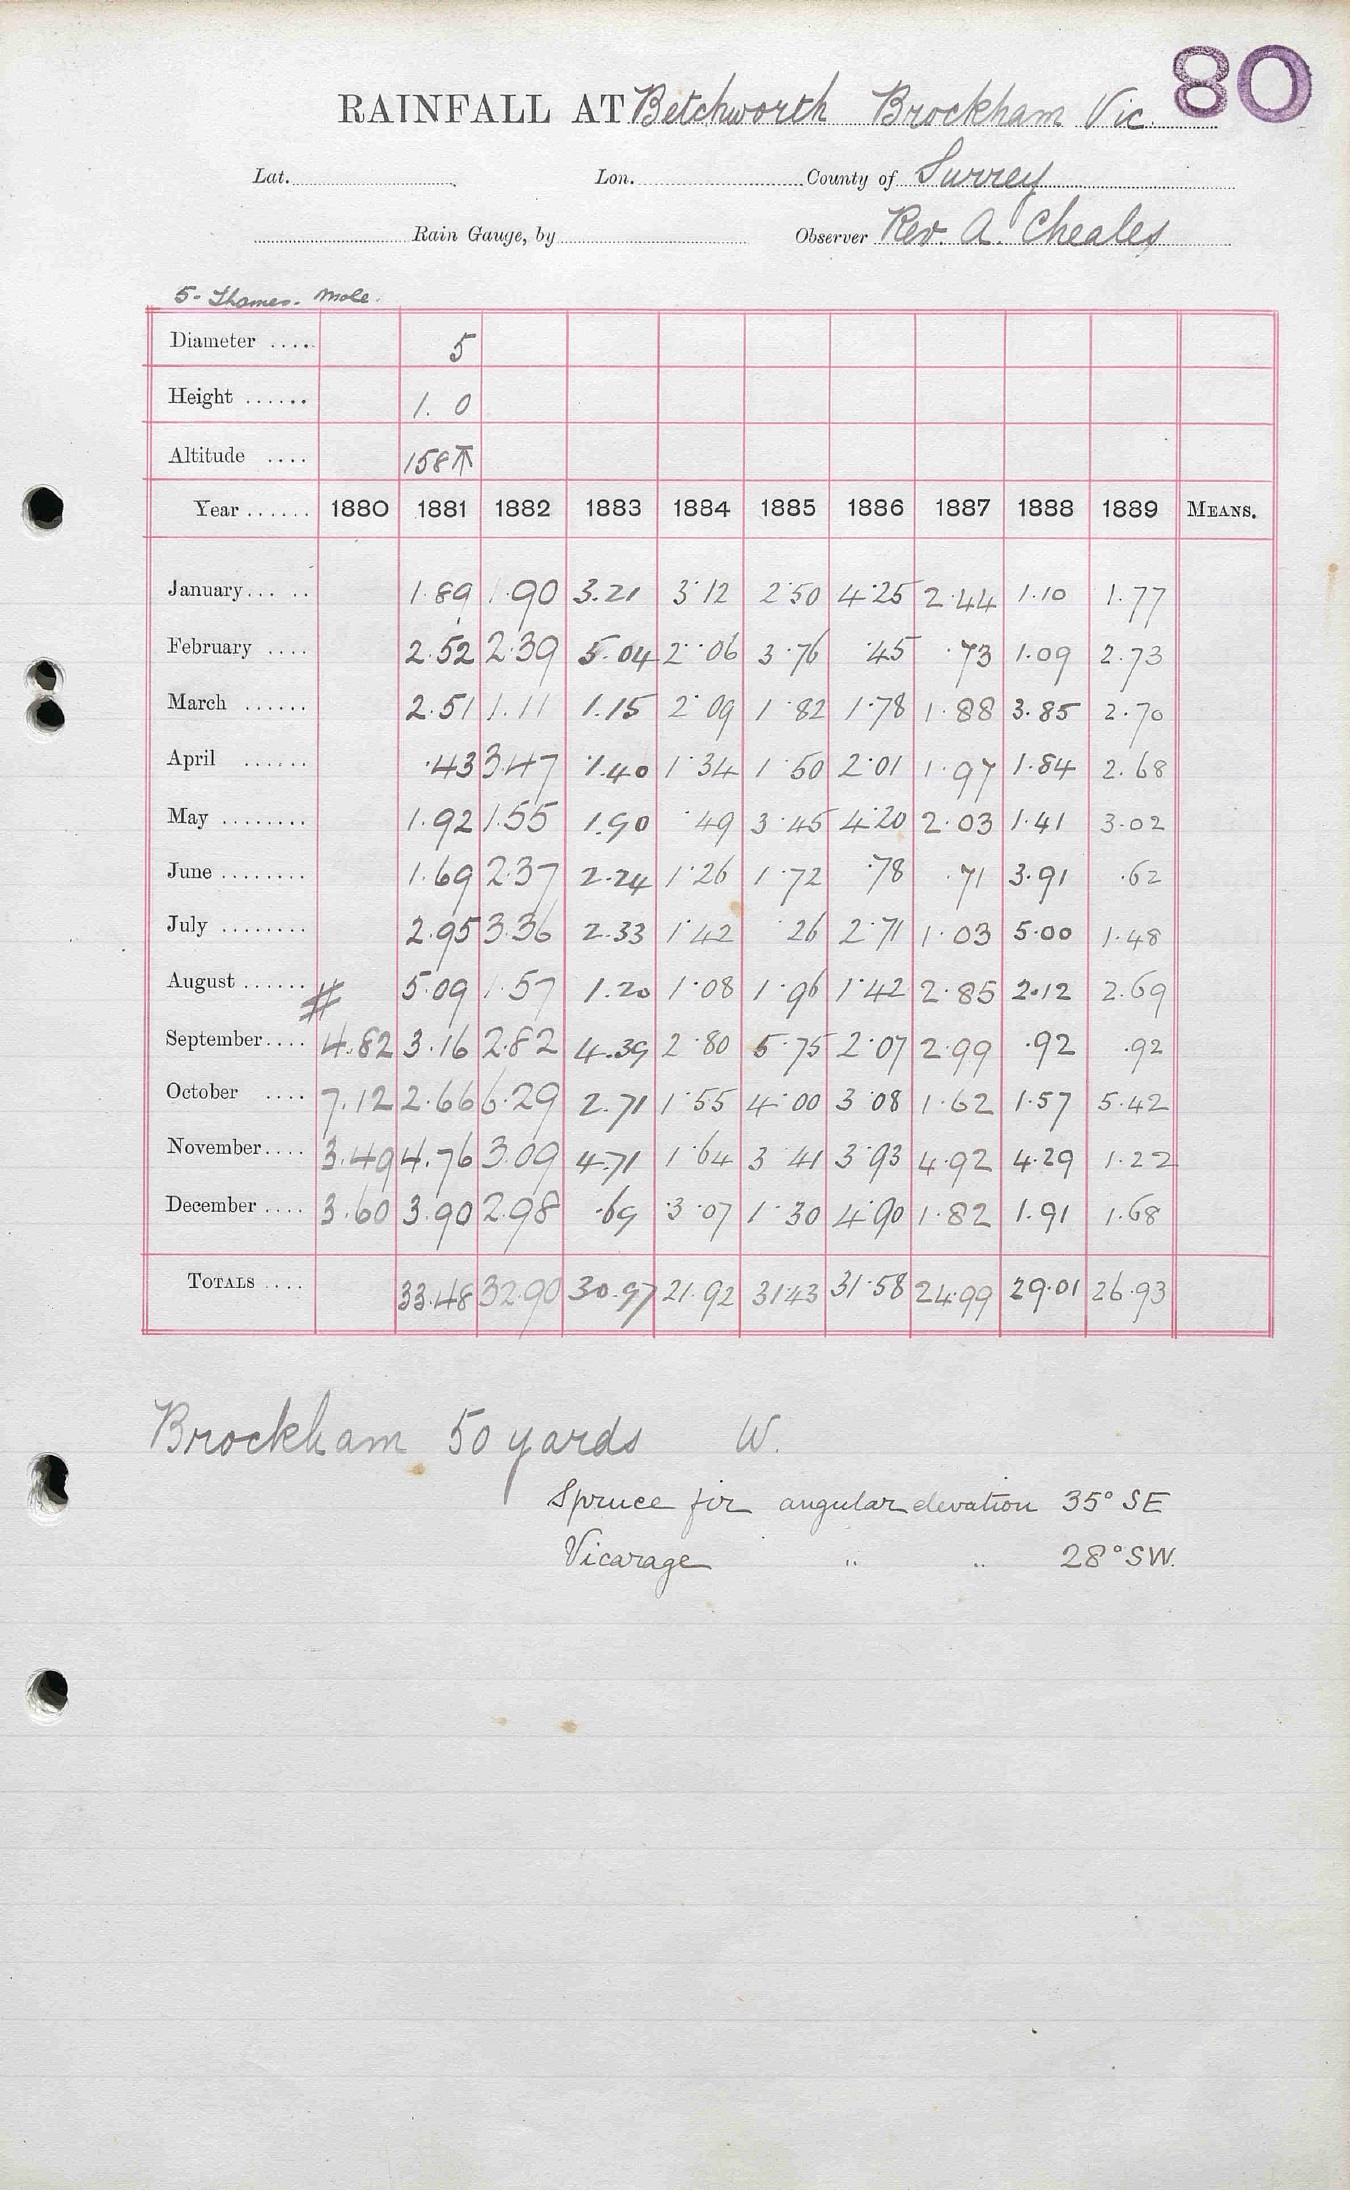 80
RAINFALL AT Betchworth Brockham Vic.
Lat. Lon. County of Surrey
Rain Gauge, by Observer Rev. A. Cheales
5 - Thames. Mole.
Diameter .... 5
Height ...... 1. 0
Altitude .... 158
Year ...... 1880 1881 1882 1883 1884 1885 1886 1887 1888 1889 MEANS.
January... .. 1.89 1.90 3.21 3.12 2.50 4.25 2.44 1.10 1.77
February .... 2.52 2.39 5.04 2.06 3.76 .45 .73 1.09 2.73
March ...... 2.51 1.11 1.15 2.09 1.82 1.78 1.88 3.85 2.70
April ...... .43 3.47 1.40 1.34 1.50 2.01 1.97 1.84 2.68
May ........ 1.92 1.55 1.90 .49 3.45 4.20 2.03 1.41 3.02
June ........ 1.69 2.37 2.24 1.26 1.72 .78 .71 3.91 .62
July ........ 2.95 3.36 2.33 1.42 .26 2.71 1.03 5.00 1.48
August ...... # 5.09 1.57 1.20 1.08 1.96 1.42 2.85 2.12 2.69
September.... 4.82 3.16 2.82 4.39 2.80 5.75 2.07 2.99 .92 .92
October .... 7.12 2.66 6.29 2.71 1.55 4.00 3.08 1.62 1.57 5.42
November.... 3.49 4.76 3.09 4.71 1.64 3.41 3.93 4.92 4.29 1.22
December .... 3.60 3.90 2.98 .69 3.07 1.30 4.90 1.82 1.91 1.68
TOTALS .... 33.48 32.90 30.97 21.92 31.43 31.58 24.99 29.01 26.93
Brockham 50 yards W.
Spruce fir angular elevation 35° SE
Vicarage " " 28° SW.